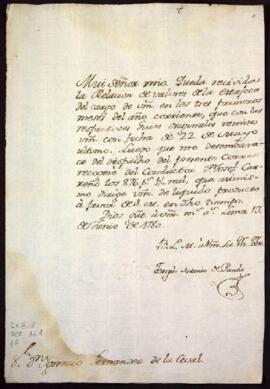 Mui Señor mio. Queda recivida
la Relacion de valores de la estafeta
del cargo de vm. en los tres primeros
meses del año corriente, que con las
respectivas originales remite
vm. con fecha de 22. de Mayo
ultimo. Luego que me desembara-
ce del despacho del presente Correo
recogeré del Conductor Josef Car-
reño los 876 p.s rr.l, que asimismo
dirige vm. del liquido producto
à favor de S. M. en dho tiempo.
Dios gue. à vm. m.s a.s Lima 13.
de Junio de 1780.
B. L. M. à Vm. su
Antonio de Pando
S.or Ignacio Fernandez de la Ceval.